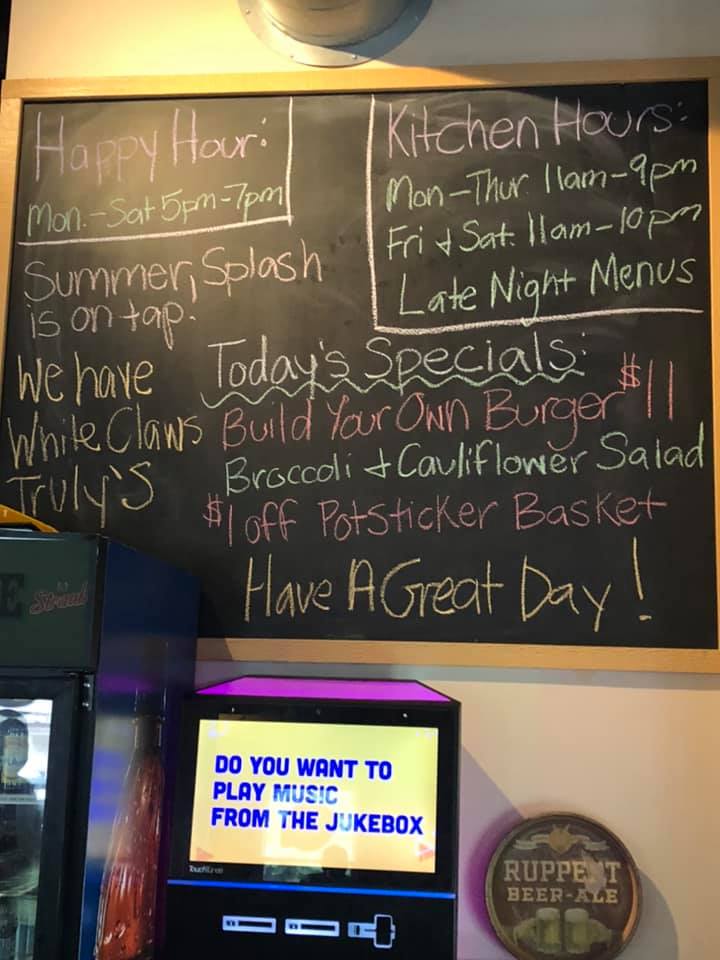 Happy Hour:
Mon.-Sat 5pm-7pm
Kitchen Hours:
Mon-Thur 11am-9pm
Fri + Sat. 11am-10pm
Late Night Menus
Summer Splash
is on tap.
We have
White Claws
Truly'S
Today's Specials:
Build Your Own Burger $11
Broccoli + Cauliflower Salad
$1 off Potsticker Basket
Have A Great Day!
Straub
DO YOU WANT TO
PLAY MUSIC
FROM THE JUKEBOX
TouchTunes
RUPPERT
BEER-ALE